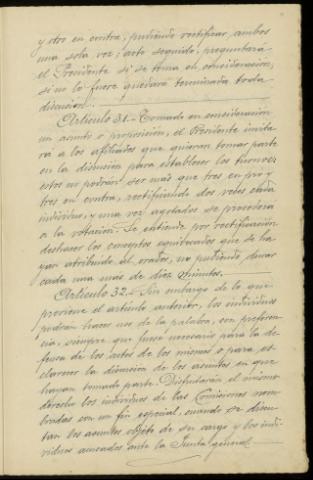 y otro en contra, pudiendo rectificar ambos
una sola vez; acto seguido, preguntará
el Presidente si se toma en consideración,
si no lo fuere quedará terminada toda
discusión.
Artículo 31.- Tomado en consideración
un asunto o proposición, el Presidente invita
rá a los afiliados que quieran tomar parte
en la discusión para establecer los turnos;
estos no podrán ser más que tres en pró y
tres en contra, rectificando dos veces cada
individuo, y una vez agotados se procederá
a la votación. Se entiende por rectificación
deshacer los conceptos equivocados que se ha
yan atribuido al orador, no pudiendo durar
cada una mas de diez minutos.
Artículo 32.- Sin embargo de lo que
previene el artículo anterior, los individuos
podrán hacer uso de la palabra, con preferen
cia, siempre que fuese necesario para la de
fensa de los actos de los mismos o para es
clarecer la discusión de los asuntos en que
hayan tomado parte. Disfrutarán el mismo
derecho los individuos de las Comisiones nom
bradas con un fin especial, cuando se discu
tan los asuntos objeto de su cargo y los indi
viduos acusados ante la Junta general.